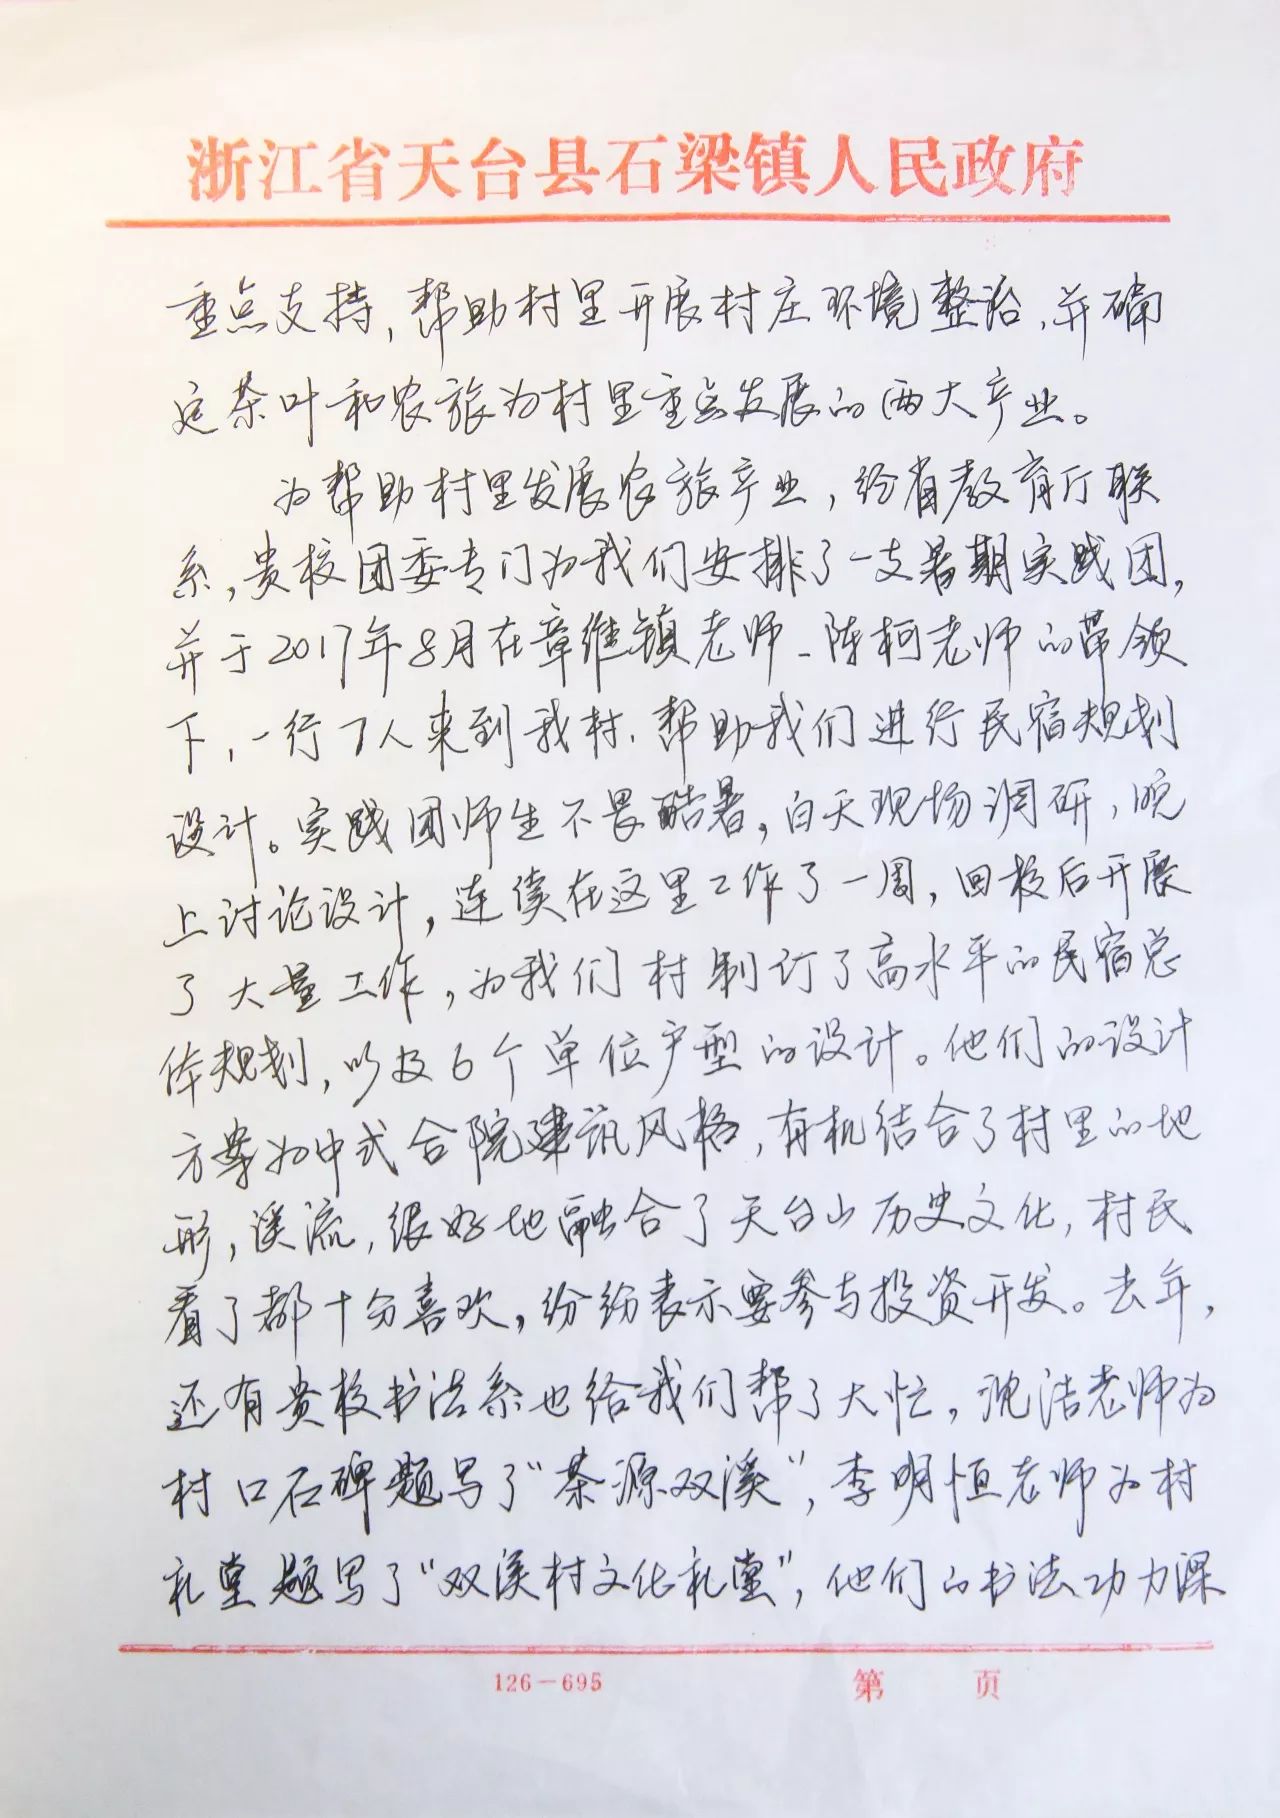 浙江省天台县石梁镇人民政府
重点支持,帮助村里开展村庄环境整治,并确
定茶叶和农旅为村里重点发展的两大产业。
为帮助村里发展农旅产业,经省教育厅联
系,贵校团委专门为我们安排了一支暑期实践团,
并于2017年8月在章维镇老师、陈柯老师的带领
下,一行7人来到我村,帮助我们进行民宿规划
设计。实践团师生不畏酷暑,白天现场调研,晚
上讨论设计,连续在这里工作了一周,回校后开展
了大量工作,为我们村制订了高水平的民宿总
体规划,以及6个单位户型的设计。他们的设计
方案为中式合院建筑风格,有机结合了村里的地
形,溪流,很好地融合了天台山历史文化,村民
看了都十分喜欢,纷纷表示要参与投资开发。去年,
还有贵校书法系也给我们帮了大忙,沈浩老师为
村口石碑题写了“茶源双溪”,李明恒老师为村
礼堂题写了“双溪村文化礼堂”,他们的书法功力深
126-695 第 页